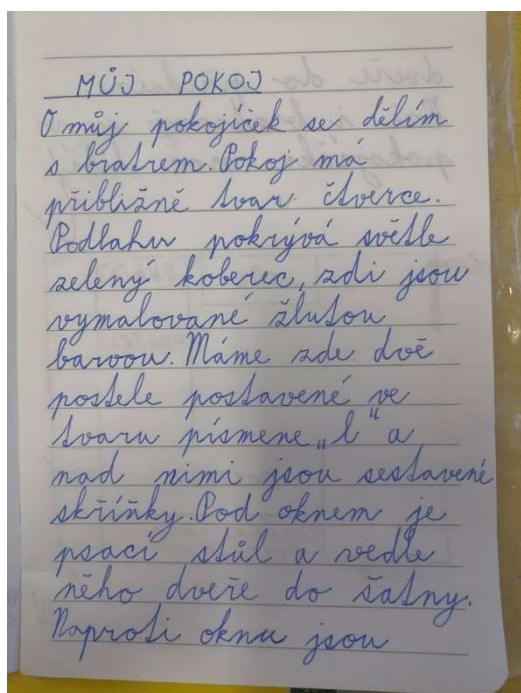 MŮJ POKOJ
O můj pokojíček se dělím
s bratrem. Pokoj má
přibližně tvar čtverce.
Podlahu pokrývá světle
zelený koberec, zdi jsou
vymalované žlutou
barvou. Máme zde dvě
postele postavené ve
tvaru písmene „l“ a
nad nimi jsou sestavené
skříňky. Pod oknem je
psací stůl a vedle
něho dveře do šatny.
Naproti oknu jsou